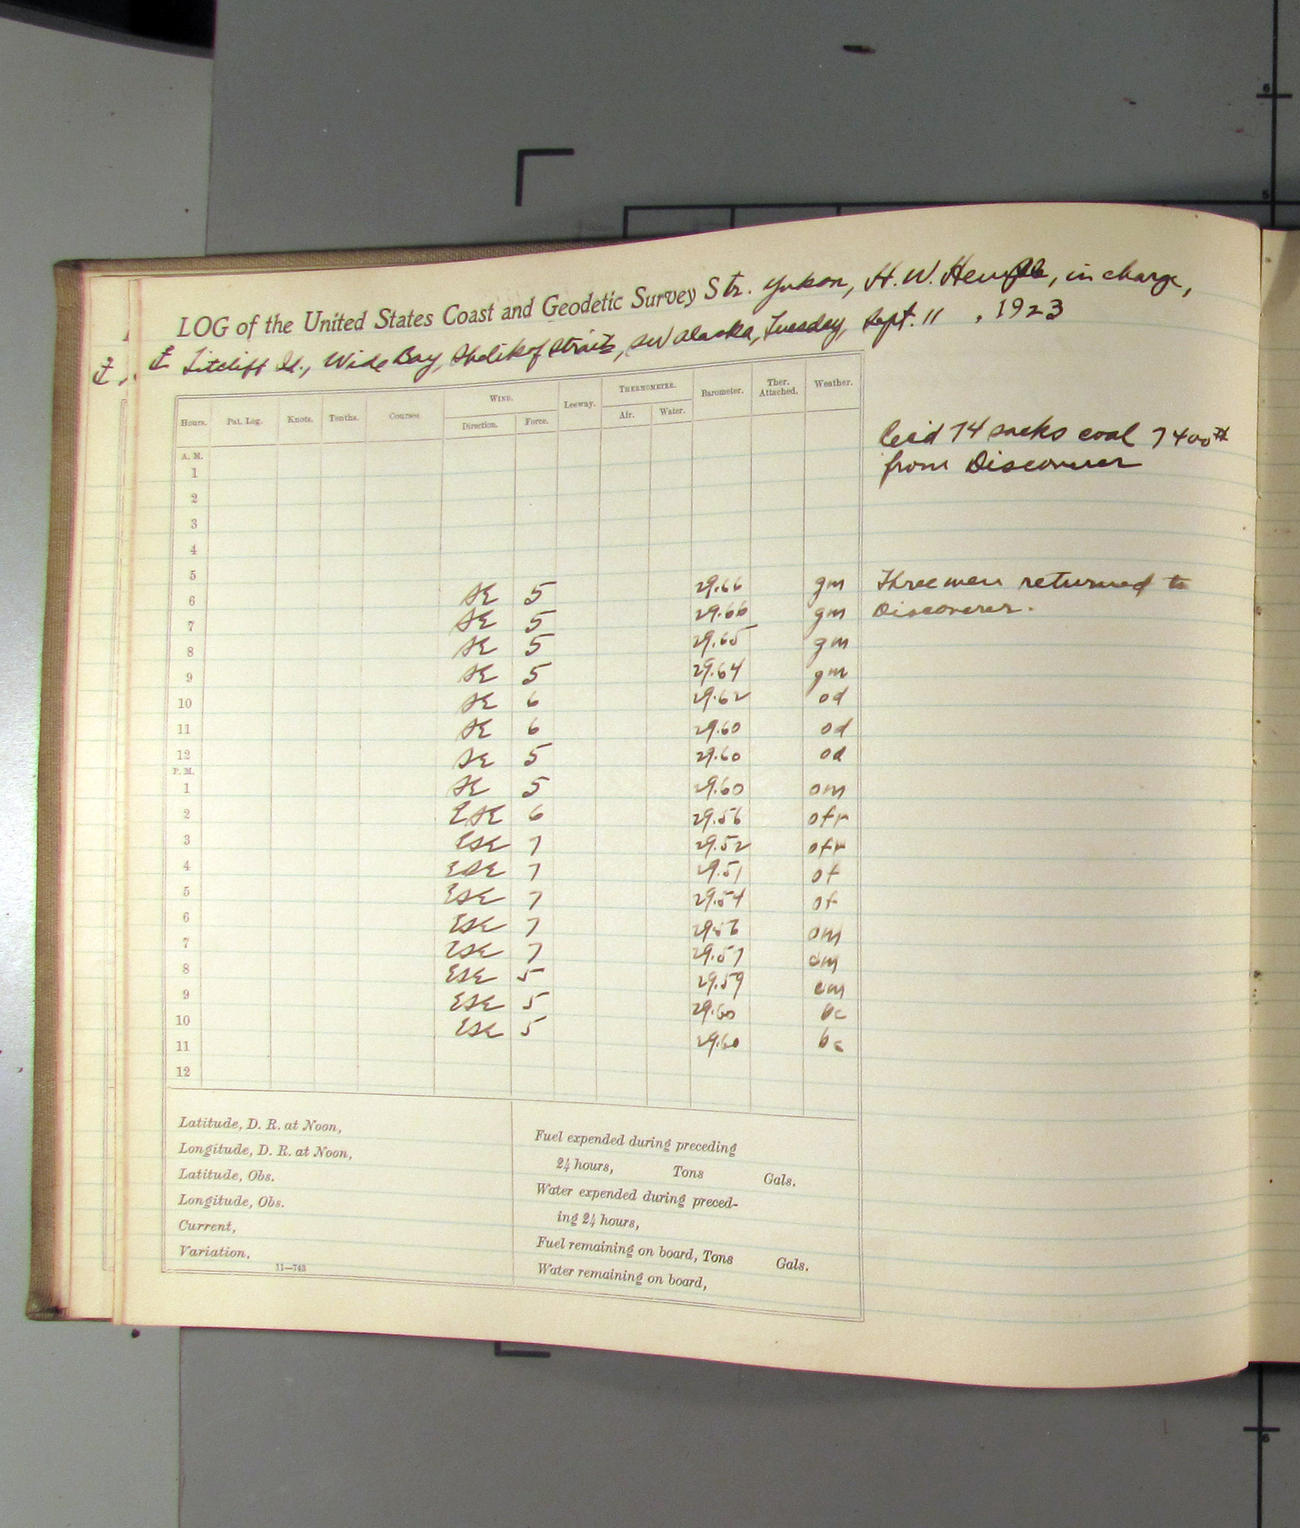 LOG of the United States Coast and Geodetic Survey Str. Yukon, H. W. Hemple, in charge,
Titcliff Is., Wide Bay, Shelikof Straits, SW Alaska, Tuesday, Sept. 11, 1923
Hours. Pat. Log. Knots. Tenths. Courses WIND. Leeway. THERMOMETER. Barometer. Ther. Attached. Weather.
Direction. Force. Air. Water.
74 sacks coal 7400#
from Discoverer
A. M.
1
2
3
4
5
6 SE 5 29.66 gm Three men returned to
7 SE 5 29.66 gm Discoverer.
8 SE 5 29.65 gm
9 SE 5 29.64 gm
10 SE 6 29.62 od
11 SE 6 29.60 od
12 SE 5 29.60 od
P. M.
1 SE 5 29.60 om
2 ESE 6 29.56 ofr
3 ESE 7 29.52 ofr
4 ESE 7 29.51 of
5 ESE 7 29.54 of
6 ESE 7 29.56 om
7 ESE 7 29.57 om
8 ESE 5 29.59 cm
9 ESE 5 29.60 bc
10 ESE 5 29.60 bc
11
12
Latitude, D. R. at Noon,
Longitude, D. R. at Noon,
Latitude, Obs.
Longitude, Obs.
Current,
Variation,
11—743
Fuel expended during preceding
24 hours, Tons Gals.
Water expended during preced-
ing 24 hours,
Fuel remaining on board, Tons Gals.
Water remaining on board,